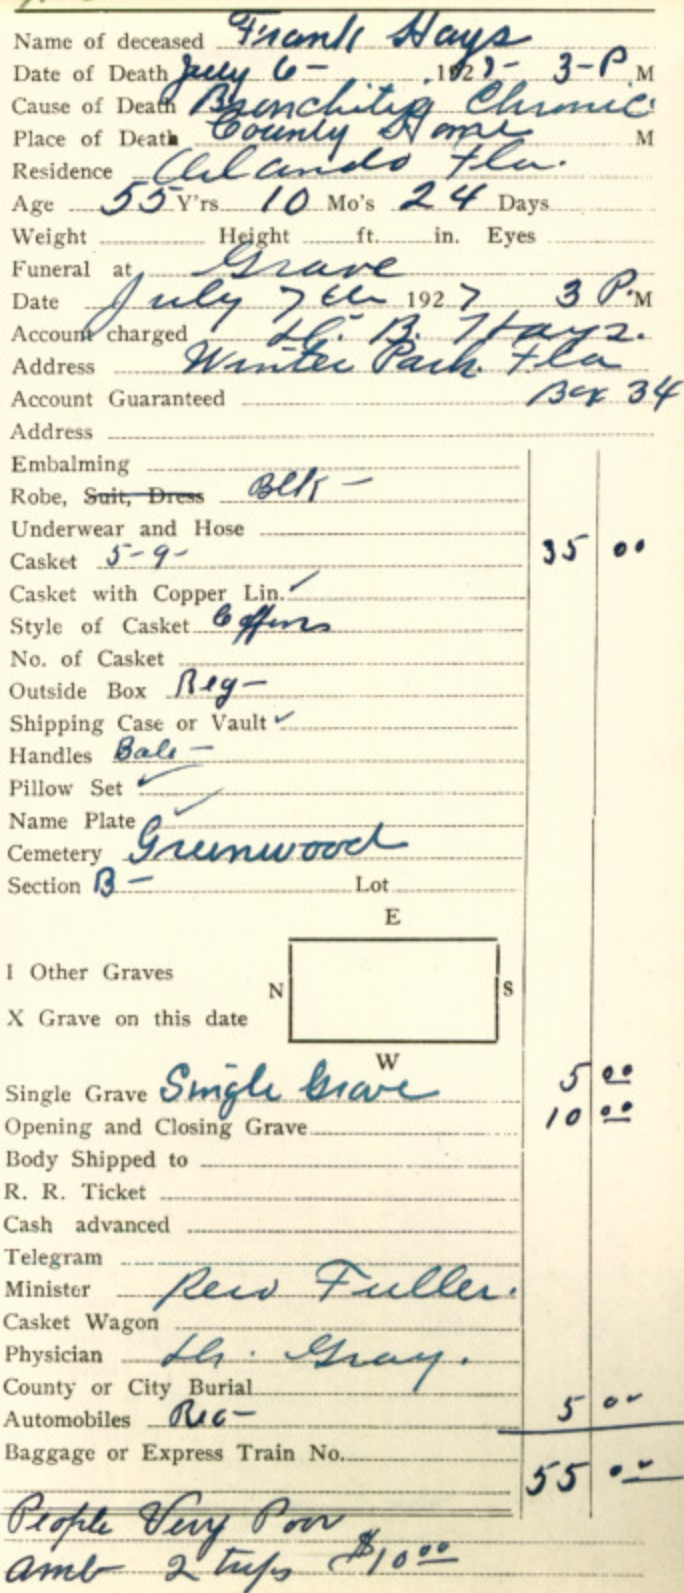 Name of deceased Frank Hays
Date of Death July 6- 1927- 3-P M
Cause of Death Bronchitis Chronic
Place of Death County Home M
Residence Orlando Fla.
Age 55 Y'rs 10 Mo's 24 Days
Weight Height ft. in. Eyes
Funeral at Grave
Date July 7th 1927 3 P.M
Account charged H. B. Hays.
Address Winter Park. Fla
Account Guaranteed Box 34
Address
Embalming
Robe, Suit, Dress Blk-
Underwear and Hose
Casket 5-9- 35 00
Casket with Copper Lin.
Style of Casket Coffin
No. of Casket
Outside Box Reg-
Shipping Case or Vault
Handles Bale-
Pillow Set
Name Plate
Cemetery Greenwood
Section B- Lot
E
I Other Graves
N S
X Grave on this date
W
Single Grave Single Grave 5 00
Opening and Closing Grave 10 00
Body Shipped to
R. R. Ticket
Cash advanced
Telegram
Minister Rev Fuller.
Casket Wagon
Physician Dr. Gray.
County or City Burial
Automobiles 5 00
Baggage or Express Train No.
55 00
People Very Poor
amb 2 trips $10 00